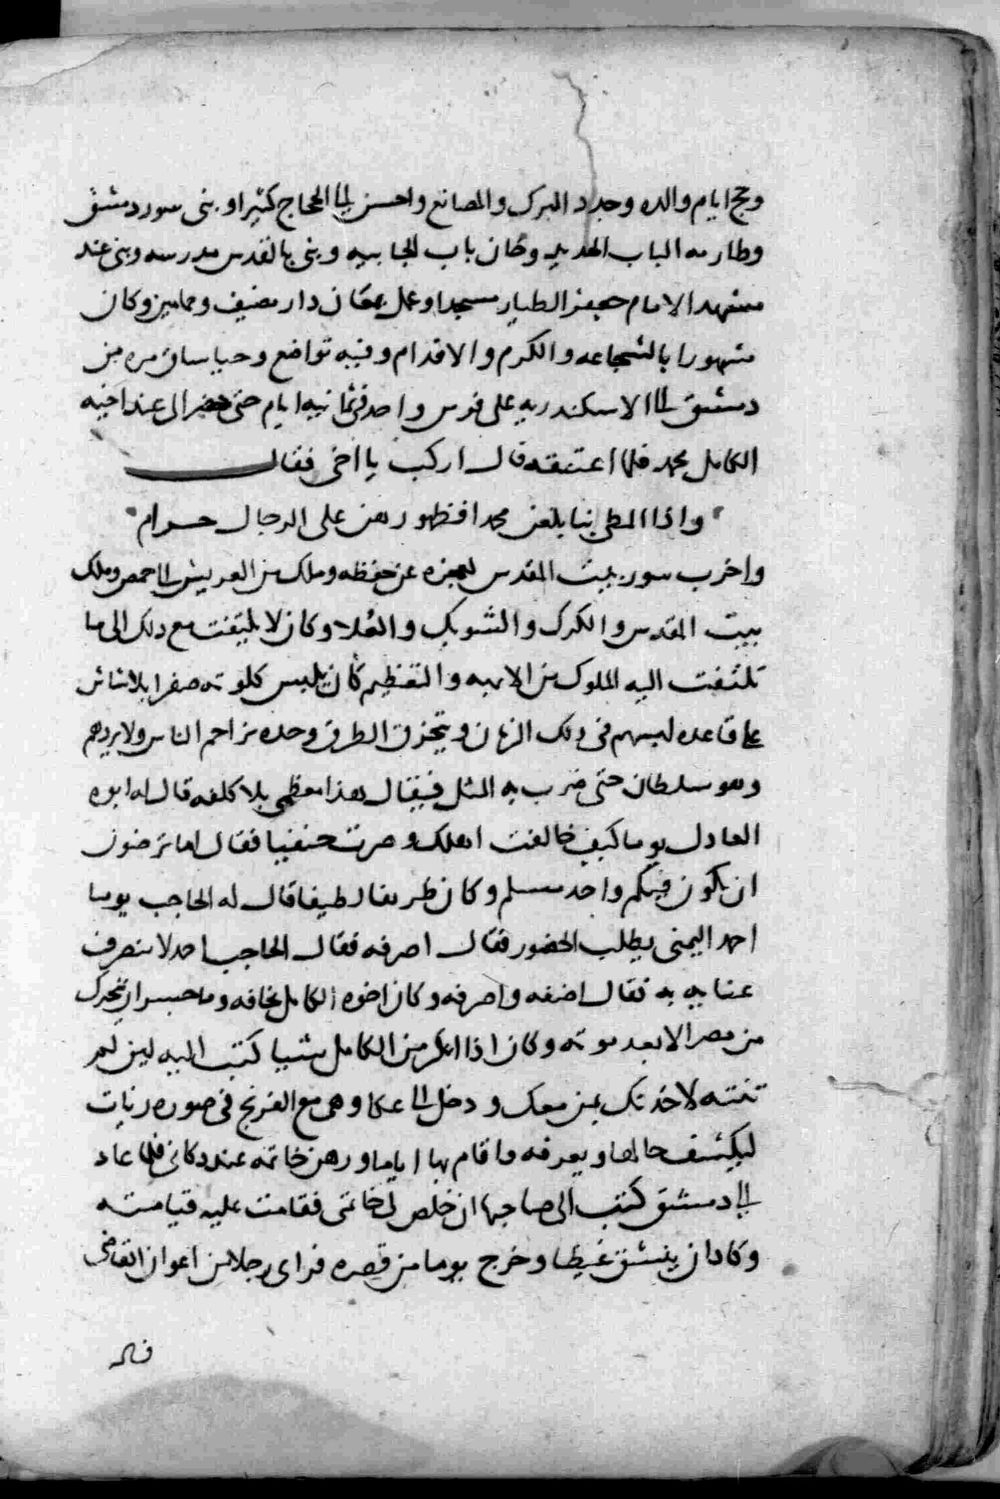 وحج ايام والده وجدد البرك والمصانع واحسن الى الحجاج كثيرا وبنى سور دمشق
وطارمه الباب الحديد وخان باب الجابيه وبنى بالقدس مدرسه وبنى عند
مشهد الامام جعفر الطيار مسجدا وعمل بمعان دار مضيف وحمامين وكان
مشهورا بالشجاعه والكرم والاقدام وفيه تواضع وحيا ساق مره من
دمشق الى الاسكندريه على فرس واحد فى ثمانيه ايام حتى حضر الى عند اخيه
الكامل محمد فلما اعتنقه قال اركب يا اخى فقال
واذا المطى بنا بلغن محمدا فظهورهن على الرجال حرام
واخرب سور بيت المقدس لعجزه عن حفظه وملك من العريش الى حمص وملك
بيت المقدس والكرك والشوبك والعلا وكان لا يلتفت مع دلك الى ما
تلتفت اليه الملوك من الابهه والتعظيم كان يلبس كلوته صفرا بلا شاش
على قاعده لبسهم فى دلك الزمان ويتخرق الطرق وحده يزاحم الناس ولا يردهم
وهو سلطان حتى ضرب به المثل فيقال هذا معظمى بلا كلفه قال له ابوه
العادل يوما كيف خالفت اهلك وصرت حنفيا فقال اما ترضون
ان يكون فيكم واحد مسلم وكان ظريفا لطيفا قال له الحاجب يوما
احمد اليمنى يطلب الحضور فقال اصرفه فقال الحاجب احمد لا ينصرف
عنايه به فقال اضفه واصرفه وكان اخوه الكامل يخافه وما جسر ان يتحرك
من مصر الا بعد موته وكان اذا انكر من الكامل شيا كتب اليه لين لم
تنته لاخدتك بمن معك ودخل الى عكا وهى مع الفرنج فى صوره زيات
ليكشف حالها ويعرفه واقام بها اياما ورهن خاتمه عند دكانى فلما عاد
الى دمشق كتب الى صاحبها ان خلص لى خاتمى فقامت عليه قيامته
وكاد ان ينشق غيظا وخرج يوما من قصره فراى رجلا من اعوان القاضى